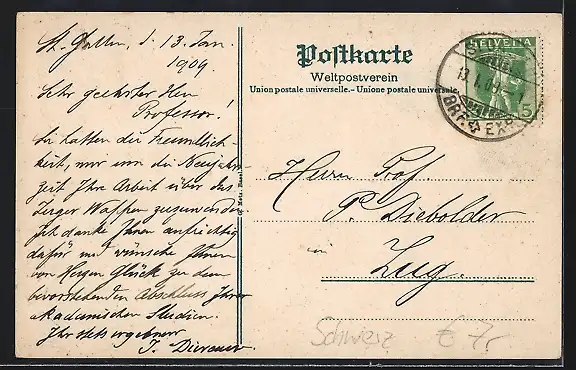 St. Gallen, d. 13. Jan.
1909.
Sehr geehrter Herr
Professor!
Sie hatten die Freundlich-
keit, mir um die Neujahrs-
zeit Ihre Arbeit über das
Zuger Wappen zuzuwenden.
Ich danke Ihnen aufrichtig
dafür und wünsche Ihnen
von Herzen Glück zu dem
bevorstehenden Abschluss Ihrer
akademischen Studien.
Ihr stets ergebener
J. Dierauer
Postkarte
Weltpostverein
Union postale universelle. - Unione postale universale.
HELVETIA
5
13.I.09
BRF. EXP.
Herrn Prof.
P. Diebolder
in
Zug.
Schweiz € 7,-